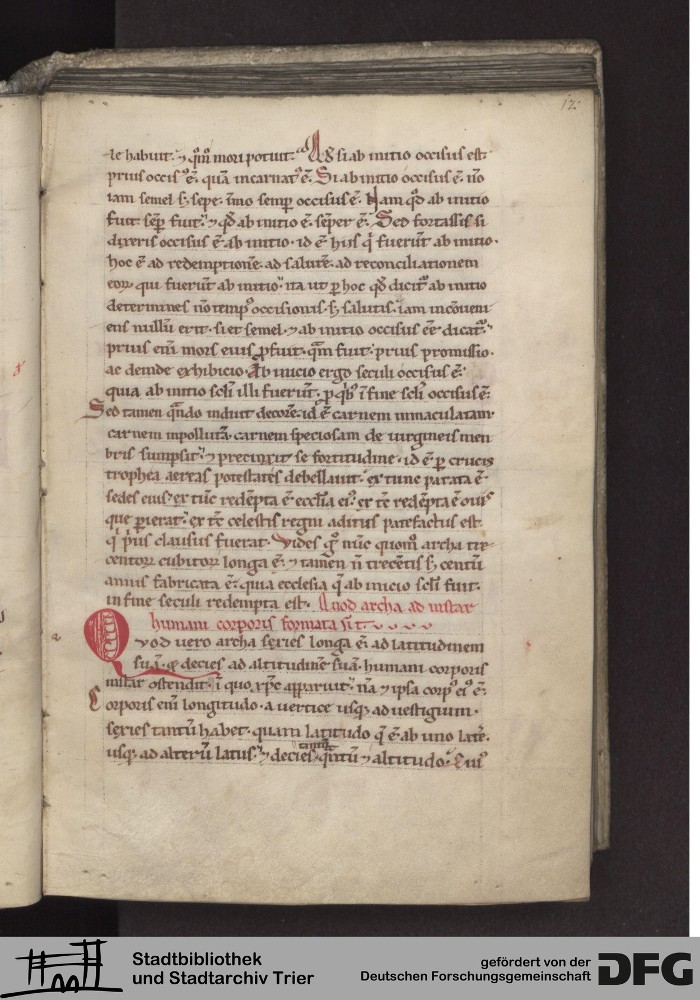 12
te habuit. ⁊ qm̄ mori potuit. Aɫ si ab initio occisus est
prius occisꝰ ē. quā incarnatꝰ ē. Si ab initio occisus ē. nō
iam semel sꝫ sepe. īmo semꝑ occisus ē. Nam qđ ab initio
fuit. semꝑ fuit. ⁊ qđ ab initio ē. semper ē. Sed fortassis si
dixeris occisus ē ab initio. id ē his qͥ fuerūt ab initio.
hoc ē ad redemptionē. ad salutē. ad reconciliationem
eoꝝ qui fuerūt ab initio. ita ut ꝑ hoc qđ dicitᷣ ab initio
determines nō tempꝰ occisionis. sꝫ salutis. iam incōueni
ens nullū erit. si et semel. ⁊ ab initio occisus eē dicatᷣ.
prius enī mors eius ꝓfuit. quam fuit. prius promissio.
ac deinde exhibicio. Ab inicio ergo seculi occisus ē.
quia ab initio scl̄i illi fuerūt. ꝓ qͥbꝰ ī fine scl̄i occisus ē.
Sed tamen qn̄do induit decorē. id ē carnem inmaculatam
carnem inpollutā. carnem speciosam de uirgineis mem
bris sumpsit. ⁊ precinxit se fortitudine. id ē ꝑ crucis
trophea aereas potestates debellauit. ex tunc parata ē
sedes eius. ex tūc redēpta ē ecctia eiꝰ. ex tc̄ redēpta ē ouis
que ꝑierat. ex tc̄ celestis regni aditus patefactus est.
qͥ pͥus clausus fuerat. Vides gͦ nūc quom̄ archa tre
centoꝝ cubitoꝝ longa ē. ⁊ tamen n̄ trecētis sꝫ centū
annis fabricata ē. quia ecclesia q̄ ab inicio scl̄i fuit.
in fine seculi redempta est. Quod archa ad instar
humani corporis formata sit
Qvod uero archa sexies longa ē. ad latitudinem
suā. ⁊ decies ad altitudinē suā. humani corporis
instar ostendit. ī quo xp̄c apparuit. nā ⁊ ipsa corpꝰ eiꝰ ē.
Corporis enī longitudo. a uertice usqꝫ ad uestigium.
sexies tantū habet. quam latitudo q̄ ē ab uno late
usqꝫ ad alterū latus. ⁊ decies tantū qn̄tū ⁊ altitudo. Cuiꝰ
Stadtbibliothek
und Stadtarchiv Trier
gefördert von der
Deutschen Forschungsgemeinschaft
DFG